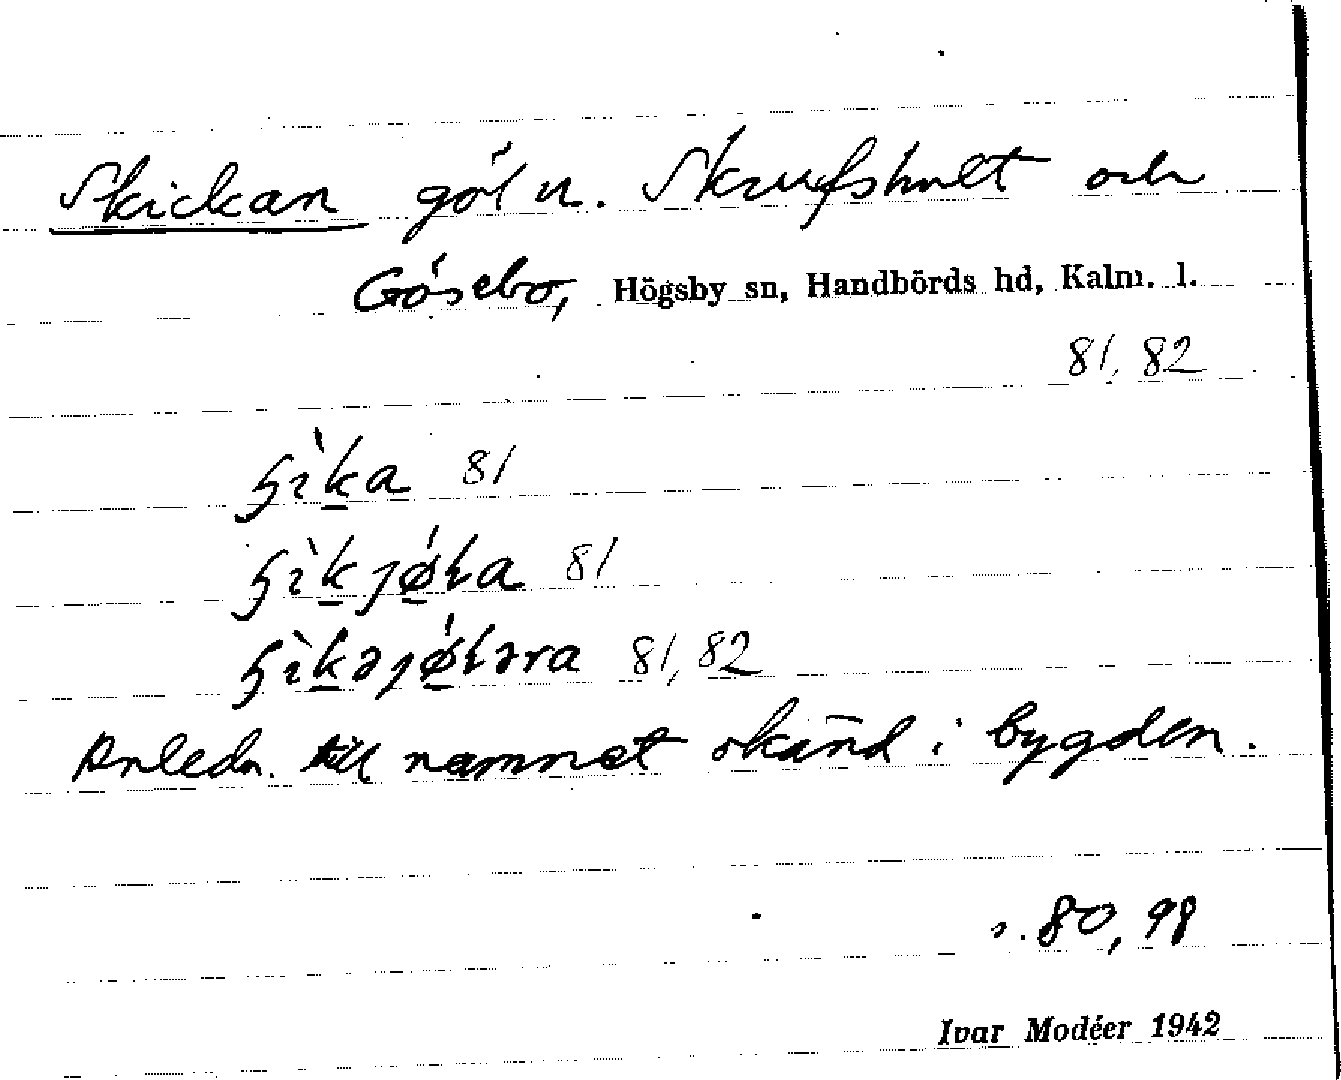 Skickan göl u. Skrufshult och
Gösebo, Högsby sn, Handbörds hd, Kalm. l.
81, 82
81
81
81, 82
Anledn. till namnet okänd i bygden.
s. 80, 98
Ivar Modéer 1942